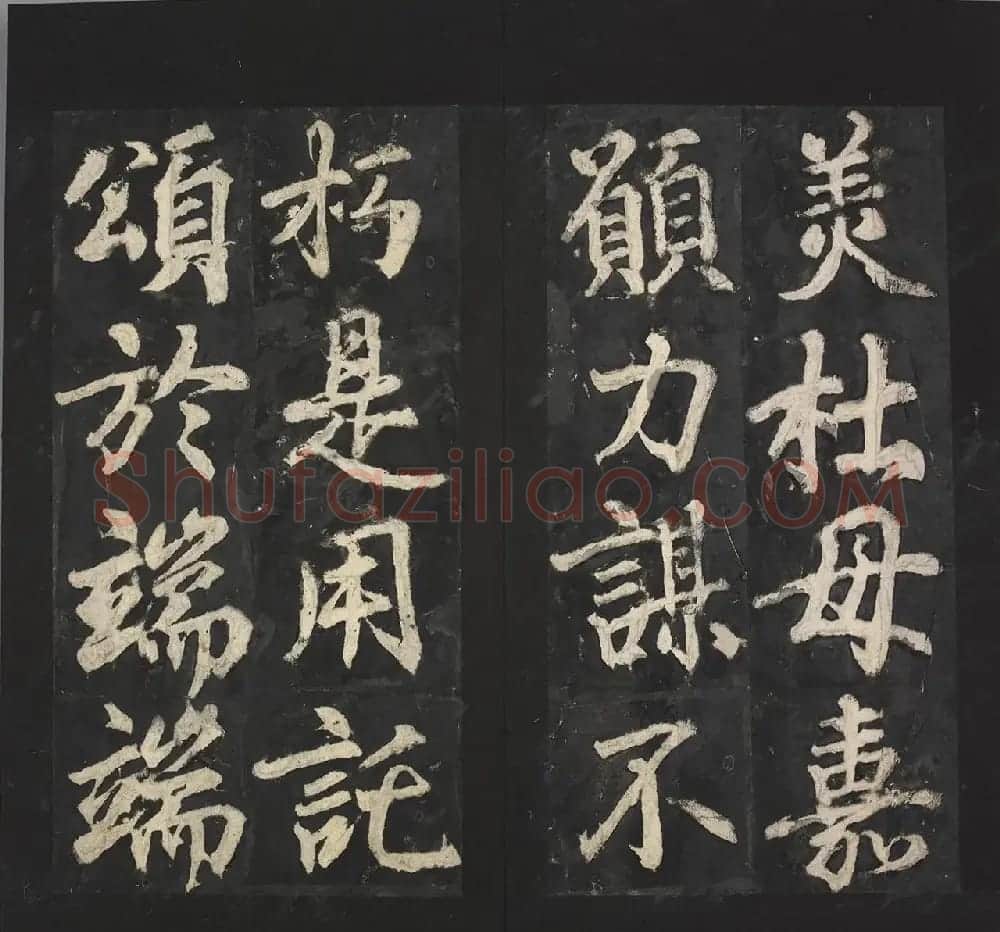 美杜母嘉
願力謀不
朽是用託
頌於端端
Shufaziliao.COM